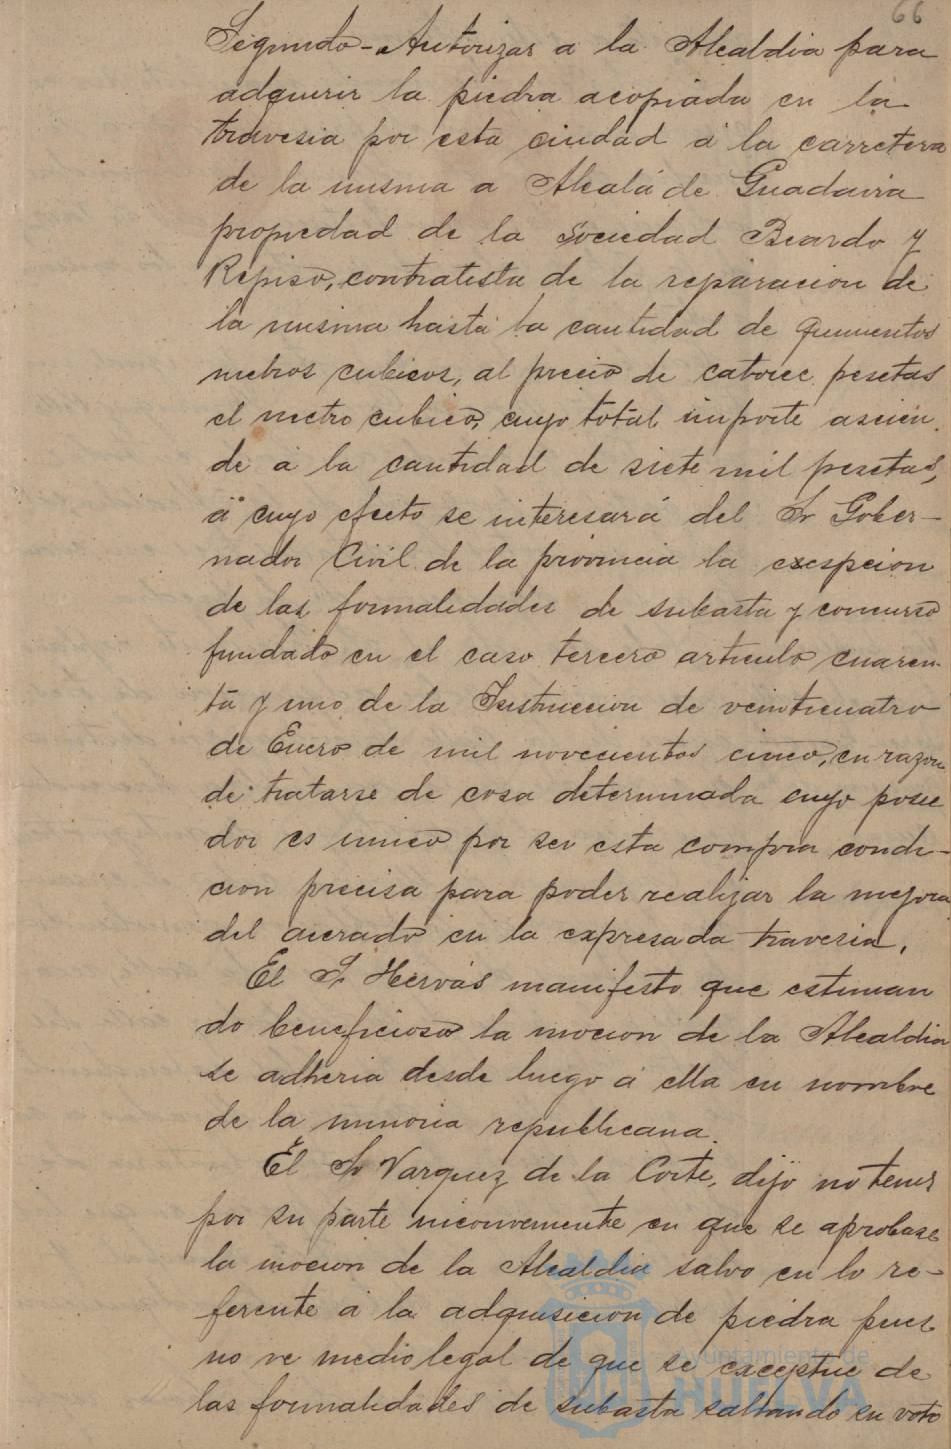 66
Segundo - Autorizar a la Alcaldia para
adquirir la piedra acopiada en la
travesia por esta ciudad á la carretera
de la misma a Alcalá de Guadaira
propiedad de la Sociedad Beardo y
Repiso, contratista de la reparacion de
la misma hasta la cantidad de quinientos
metros cubicos, al precio de catorce pesetas
el metro cubico, cuyo total importe ascien
de á la cantidad de siete mil pesetas,
á cuyo efecto se interesará del Sr Gober-
nador Civil de la provincia la exespcion
de las formalidades de subasta y concurso
fundado en el caso tercero articulo cuaren-
ta y uno de la Instruccion de veinticuatro
de Enero de mil novecientos cinco, en razon
de tratarse de cosa determinada cuyo posee
dor es unico por ser esta compra condi-
cion precisa para poder realizar la mejora
del acerado en la expresada travesia.
El Sr Hervás manifesto que estiman
do beneficiosa la mocion de la Alcaldia
se adheria desde luego á ella en nombre
de la minoria republicana.
El Sr Vazquez de la Corte, dijo no tener
por su parte inconveniente en que se aprobase
la mocion de la Alcaldia salvo en lo re-
ferente á la adquisicion de piedra pues
no ve medio legal de que se exceptue de
las formalidades de subasta salvando su voto
Ayuntamiento de
HUELVA